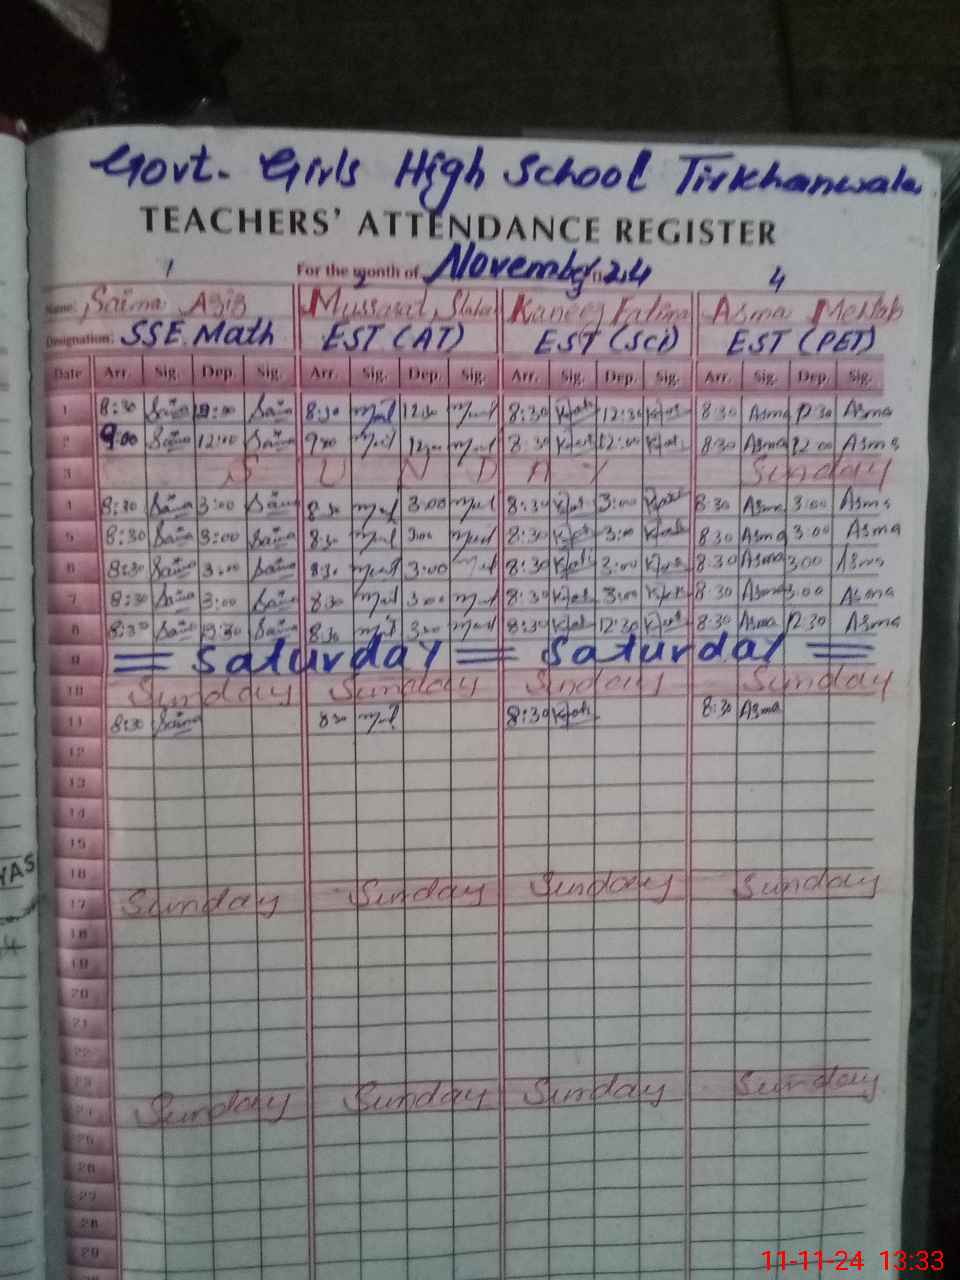 Govt. Girls High School Tirkhanwala
TEACHERS' ATTENDANCE REGISTER
For the month of November 24
1 2 4
Name: Saima Aziz Mussarat Kaneez Fatima Asma Mehtab
Designation: SSE Math EST (AT) EST (Sci) EST (PET)
Date Arr. Sig. Dep. Sig. Arr. Sig. Dep. Sig. Arr. Sig. Dep. Sig. Arr. Sig. Dep. Sig.
1 8:30 Saima Saima 8:30 12:30 8:30 12:30 8:30 Asma 12:30 Asma
2 9:00 Saima 12:00 Saima 9:00 12:00 8:30 12:00 8:30 Asma 12:00 Asma
3 S U N D A Y Sunday
4 8:30 Saima 3:00 Saima 8:30 3:00 8:30 3:00 8:30 Asma 3:00 Asma
5 8:30 Saima 3:00 Saima 8:30 3:00 8:30 3:00 8:30 Asma 3:00 Asma
6 8:30 Saima 3:00 Saima 8:30 3:00 8:30 3:00 8:30 Asma 3:00 Asma
7 8:30 Saima 3:00 Saima 8:30 3:00 8:30 3:00 8:30 Asma 3:00 Asma
8 8:30 Saima Saima 8:30 3:00 8:30 12:30 8:30 Asma 12:30 Asma
9 = Saturday = Saturday =
10 Sunday Sunday Sunday Sunday
11 8:30 Saima 8:30 8:30 8:30 Asma
12
13
14
15
16
17 Sunday Sunday Sunday Sunday
18
19
20
21
22
23
24 Sunday Sunday Sunday Sunday
25
26
27
28
29
11-11-24 13:33